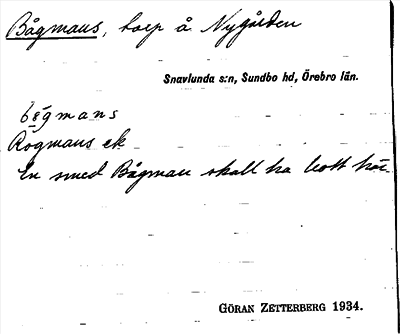 Bågmans, torp å Nygården
Snavlunda s:n, Sundbo hd, Örebro län.
bågmans
Rågmans ek
En smed Bågman skall ha bott här.
GÖRAN ZETTERBERG 1934.